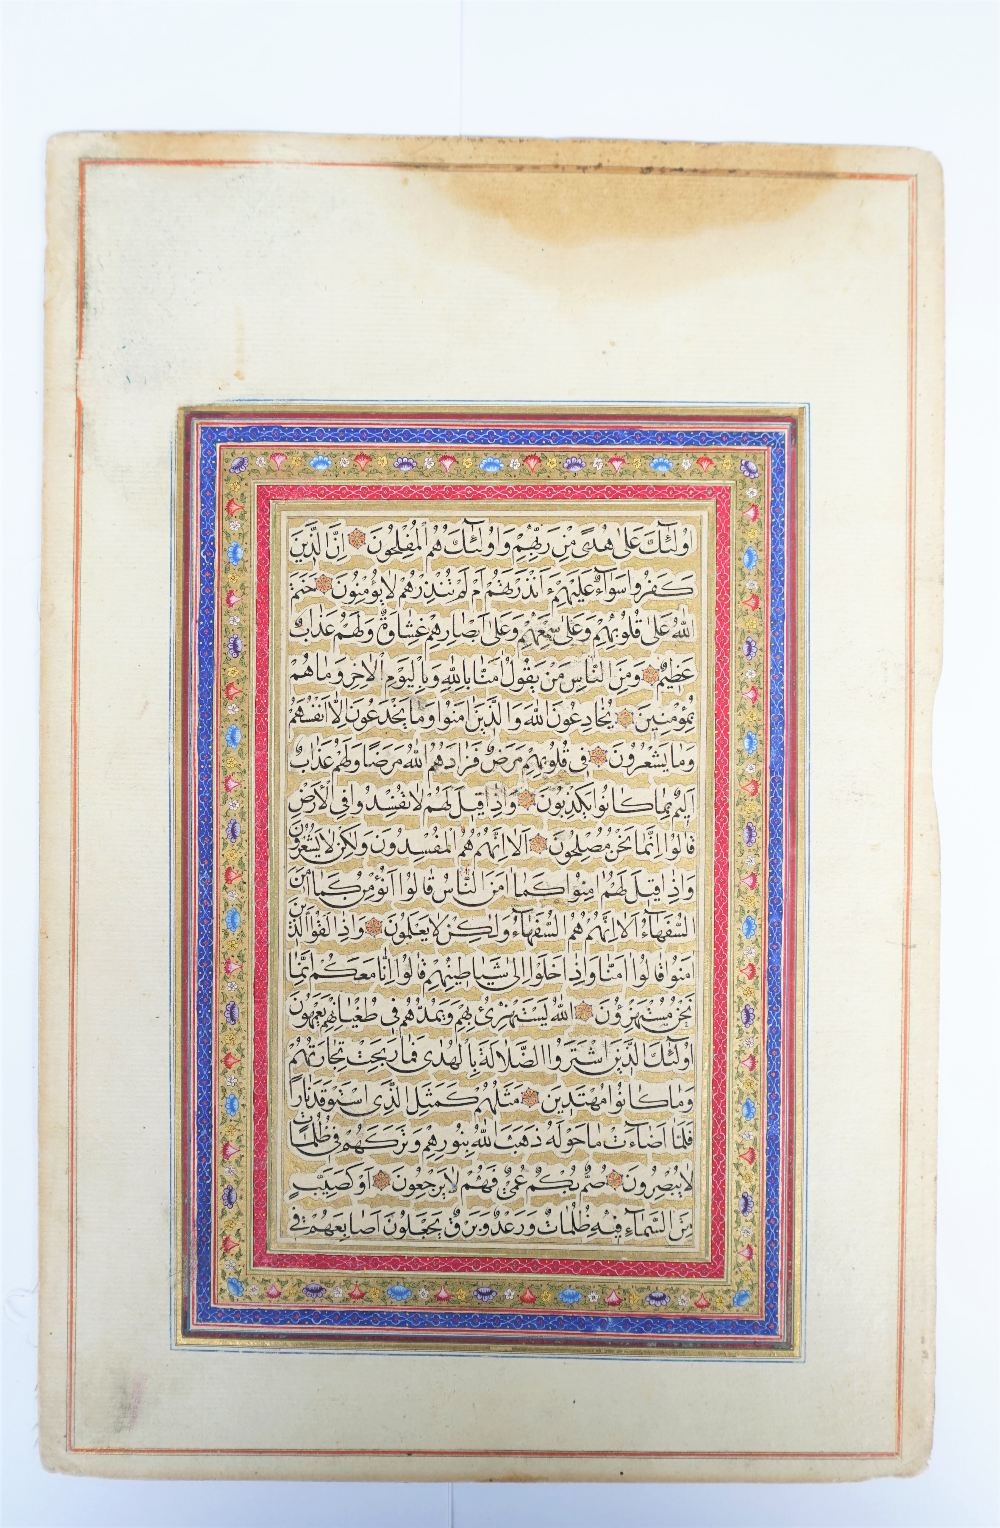 اُولٰئِكَ عَلٰى هُدًى مِنْ رَبِّهِمْ وَاُولٰئِكَ هُمُ الْمُفْلِحُونَ اِنَّ الَّذِينَ
كَفَرُوا سَوَاءٌ عَلَيْهِمْ ءَاَنْذَرْتَهُمْ اَمْ لَمْ تُنْذِرْهُمْ لَا يُؤْمِنُونَ خَتَمَ
اللهُ عَلٰى قُلُوبِهِمْ وَعَلٰى سَمْعِهِمْ وَعَلٰى اَبْصَارِهِمْ غِشَاوَةٌ وَلَهُمْ عَذَابٌ
عَظِيمٌ وَمِنَ النَّاسِ مَنْ يَقُولُ اٰمَنَّا بِاللهِ وَبِالْيَوْمِ الْاٰخِرِ وَمَا هُمْ
بِمُؤْمِنِينَ يُخَادِعُونَ اللهَ وَالَّذِينَ اٰمَنُوا وَمَا يَخْدَعُونَ اِلَّا اَنْفُسَهُمْ
وَمَا يَشْعُرُونَ فِي قُلُوبِهِمْ مَرَضٌ فَزَادَهُمُ اللهُ مَرَضًا وَلَهُمْ عَذَابٌ
اَلِيمٌ بِمَا كَانُوا يَكْذِبُونَ وَاِذَا قِيلَ لَهُمْ لَا تُفْسِدُوا فِي الْاَرْضِ
قَالُوا اِنَّمَا نَحْنُ مُصْلِحُونَ اَلَا اِنَّهُمْ هُمُ الْمُفْسِدُونَ وَلٰكِنْ لَا يَشْعُرُونَ
وَاِذَا قِيلَ لَهُمْ اٰمِنُوا كَمَا اٰمَنَ النَّاسُ قَالُوا اَنُؤْمِنُ كَمَا اٰمَنَ
السُّفَهَاءُ اَلَا اِنَّهُمْ هُمُ السُّفَهَاءُ وَلٰكِنْ لَا يَعْلَمُونَ وَاِذَا لَقُوا الَّذِينَ
اٰمَنُوا قَالُوا اٰمَنَّا وَاِذَا خَلَوْا اِلٰى شَيَاطِينِهِمْ قَالُوا اِنَّا مَعَكُمْ اِنَّمَا
نَحْنُ مُسْتَهْزِؤُنَ اَللهُ يَسْتَهْزِئُ بِهِمْ وَيَمُدُّهُمْ فِي طُغْيَانِهِمْ يَعْمَهُونَ
اُولٰئِكَ الَّذِينَ اشْتَرَوُا الضَّلَالَةَ بِالْهُدٰى فَمَا رَبِحَتْ تِجَارَتُهُمْ
وَمَا كَانُوا مُهْتَدِينَ مَثَلُهُمْ كَمَثَلِ الَّذِي اسْتَوْقَدَ نَارًا
فَلَمَّا اَضَاءَتْ مَا حَوْلَهُ ذَهَبَ اللهُ بِنُورِهِمْ وَتَرَكَهُمْ فِي ظُلُمَاتٍ
لَا يُبْصِرُونَ صُمٌّ بُكْمٌ عُمْيٌ فَهُمْ لَا يَرْجِعُونَ اَوْ كَصَيِّبٍ
مِنَ السَّمَاءِ فِيهِ ظُلُمَاتٌ وَرَعْدٌ وَبَرْقٌ يَجْعَلُونَ اَصَابِعَهُمْ فِي